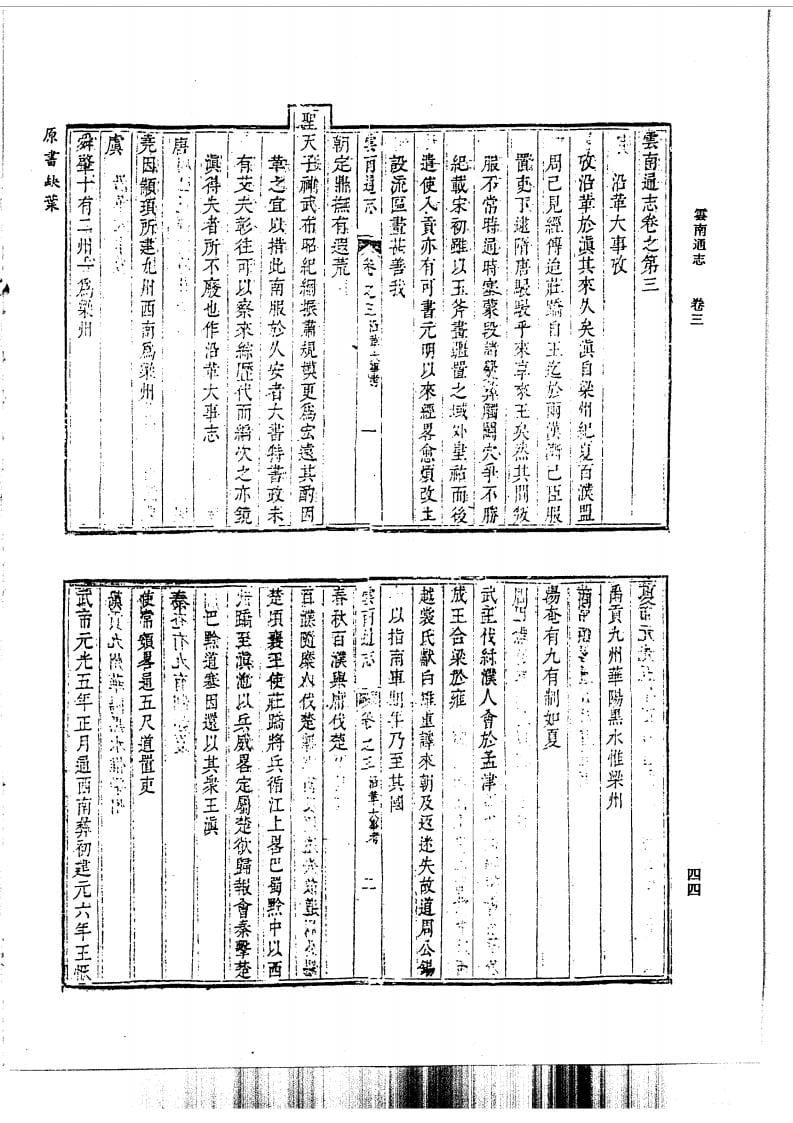 雲南通志 卷三
四四
雲南通志卷之第三
沿革大事攷
攷沿革於滇其來久矣滇自梁州紀夏百濮盟
周已見經傳迨莊蹻自王迄於兩漢濟己臣服
置吏下逮隋唐駸駸乎來享來王矣然其間叛
服不常時通時塞蒙段諸爨孫觸鬬穴爭不勝
紀載宋初雖以玉斧畫繼置之域外聖祐而後
遣使入貢亦有可書元明以來經畧愈煩改土
設流區畫甚善我
雲南通志 卷之三 沿革大事考 一
朝定鼎撫有遐荒
聖天子神武布昭紀綱振肅規模更為宏遠其酌因
革之宜以措此南服於久安者大書特書政未
有艾夫彰往可以察來綜歷代而編次之亦鏡
滇得失者所不廢也作沿革大事志
唐
堯因顓頊所建九州西南為梁州
虞
舜肇十有二州 為梁州
原書缺葉
禹貢九州華陽黑水惟梁州
湯奄有九有制如夏
武王伐紂濮人會於孟津
成王合梁於雍
越裳氏獻白雉重譯來朝及返迷失故道周公錫
以指南車期年乃至其國
雲南通志 卷之三 沿革大事考 二
春秋百濮與庸伐楚
百濮隨麋人伐楚
楚頃襄王使莊蹻將兵循江上畧巴蜀黔中以西
蹻至滇池以兵威畧定屬楚欲歸報會秦擊楚
巴黔道塞因還以其衆王滇
秦 有九有
使常頞畧通五尺道置吏
漢
武帝元光五年正月通西南彝初建元六年王恢